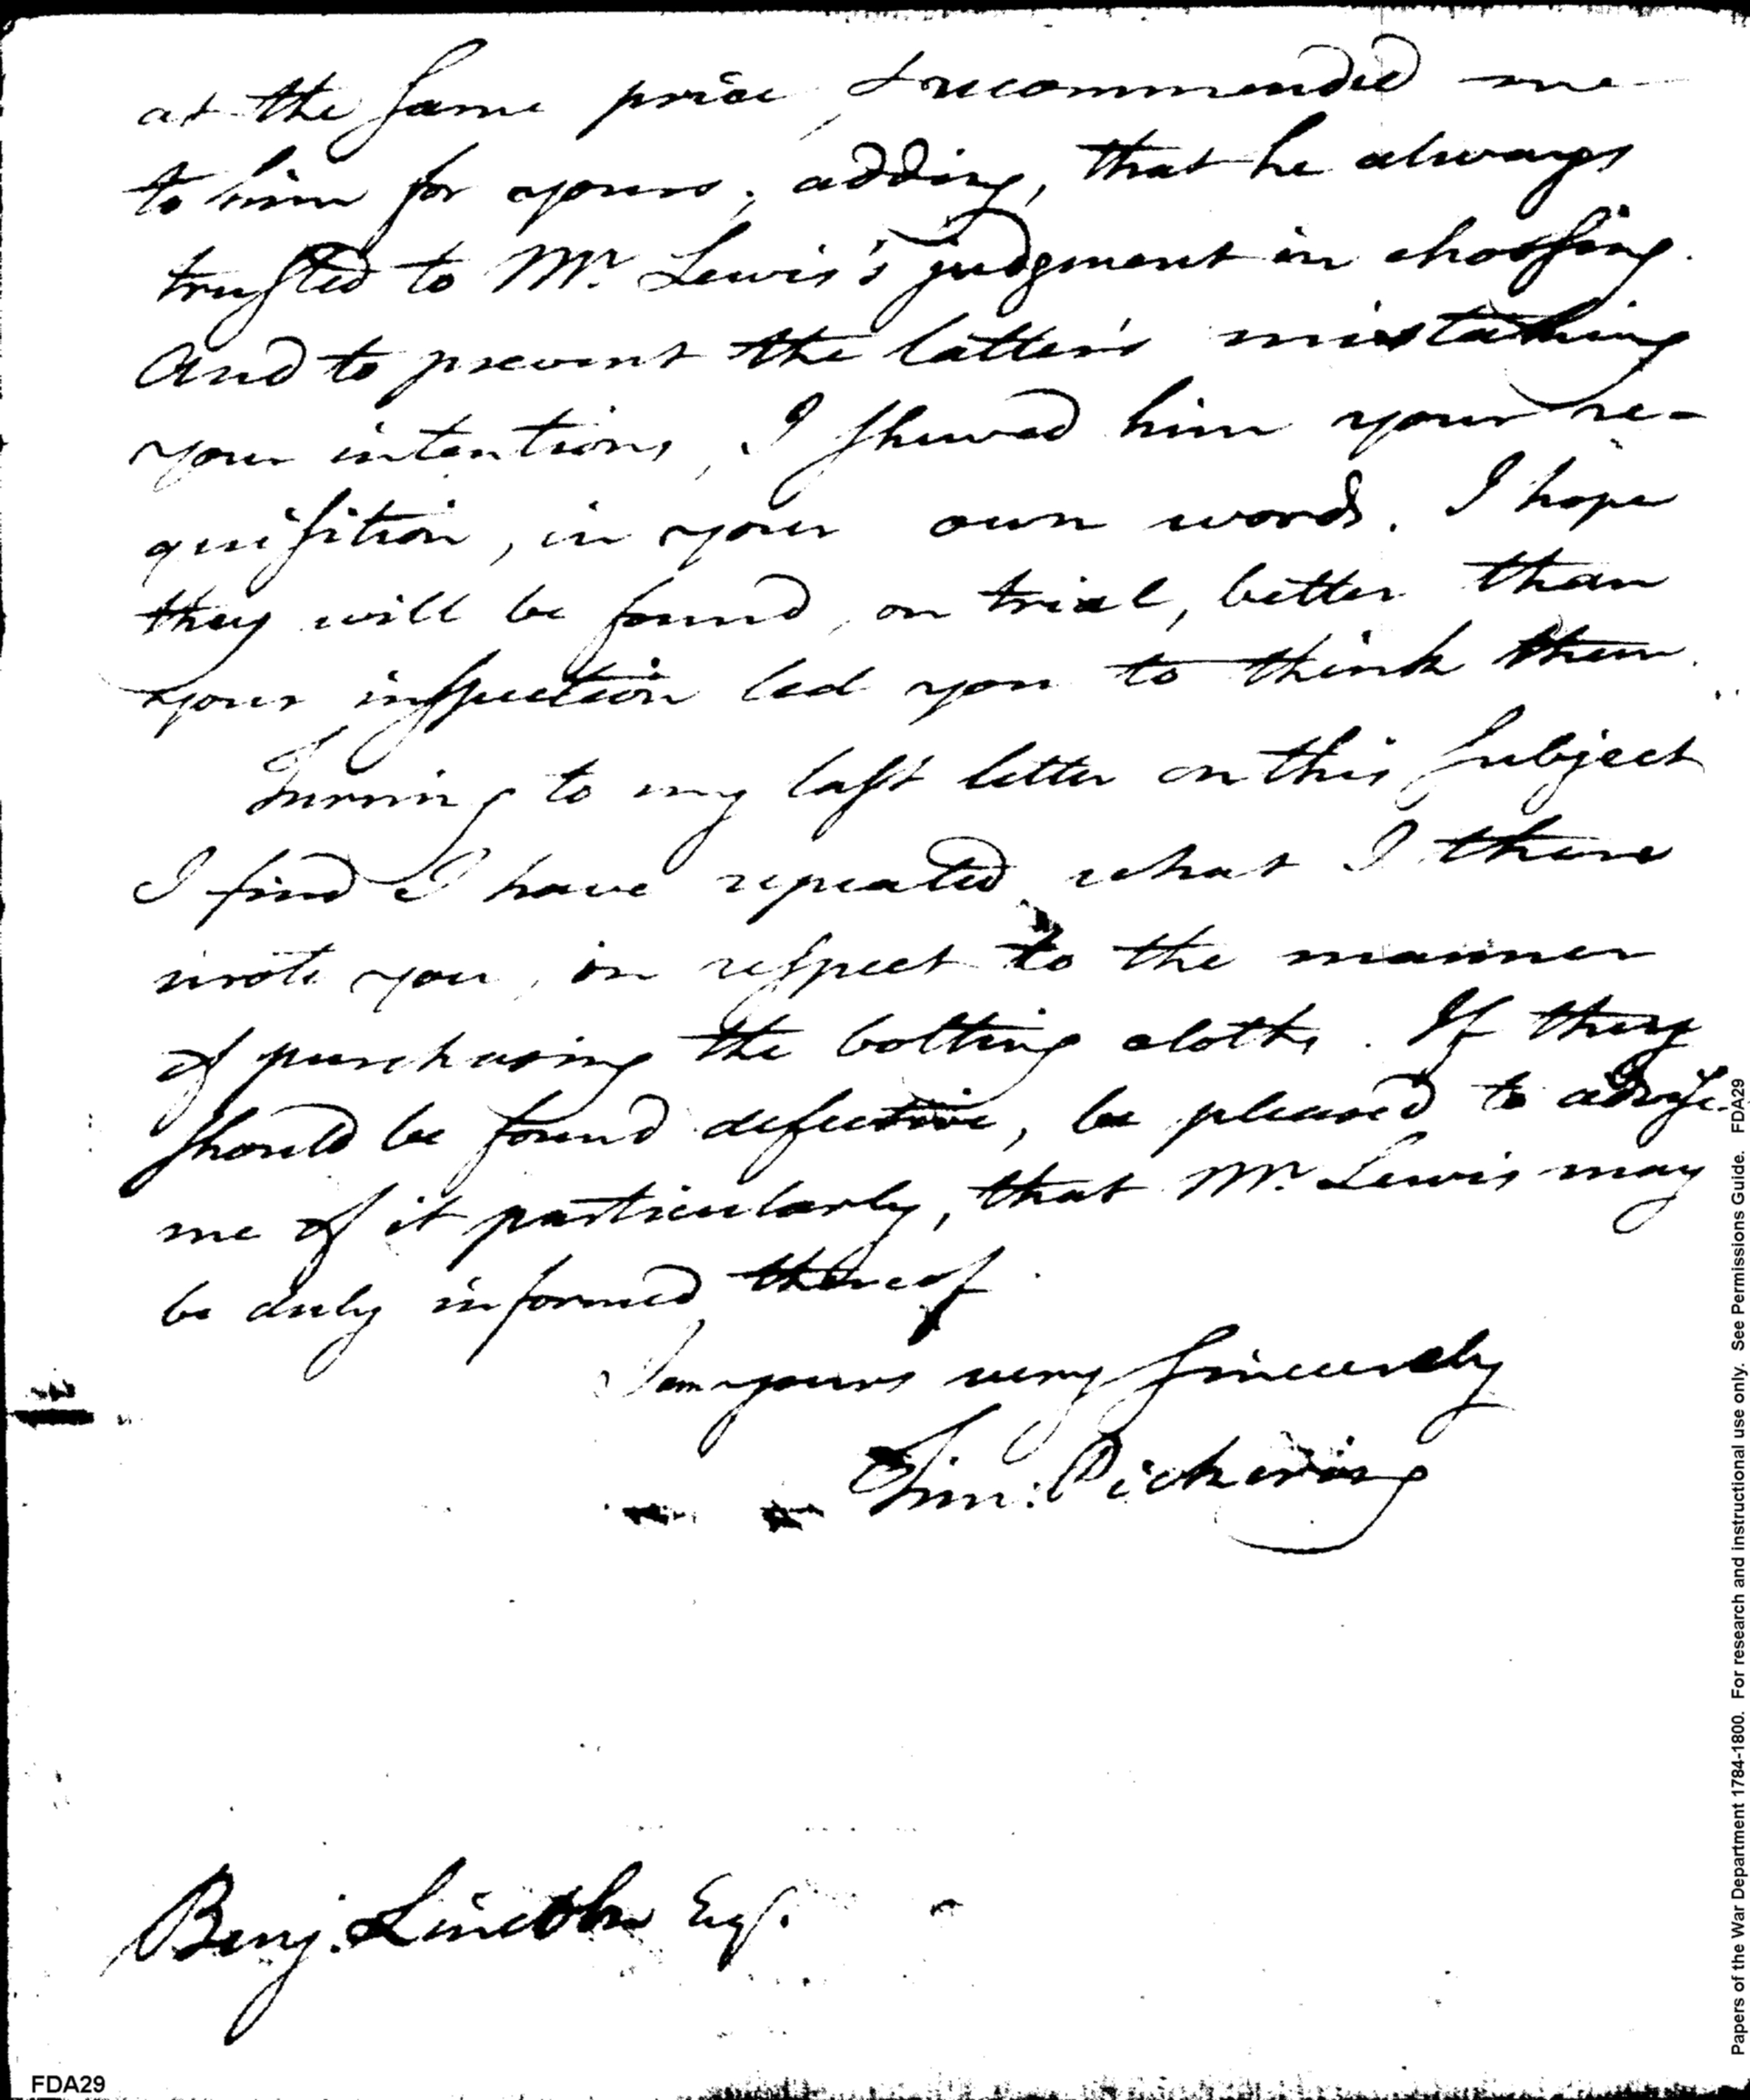 at the same price, & recommended me
to him for yours; adding, that he always
trusted to Mr. Lewis's judgment in choosing.
And to prevent the latter's mistaking
your intentions, I shewed him your re-
quisition, in your own words. I hope
they will be found, on trial, better than
your inspection led you to think them.
Turning to my last letter on this subject
I find I have repeated what I there
wrote you, in respect to the manner
of purchasing the bolting cloths. If they
should be found defective, be pleased to advise
me of it particularly, that Mr. Lewis may
be duly informed thereof.
I am yours very sincerely
Tim: Pickering
Benj. Lincoln Esq.
FDA29
Papers of the War Department 1784-1800. For research and instructional use only. See Permissions Guide. FDA29